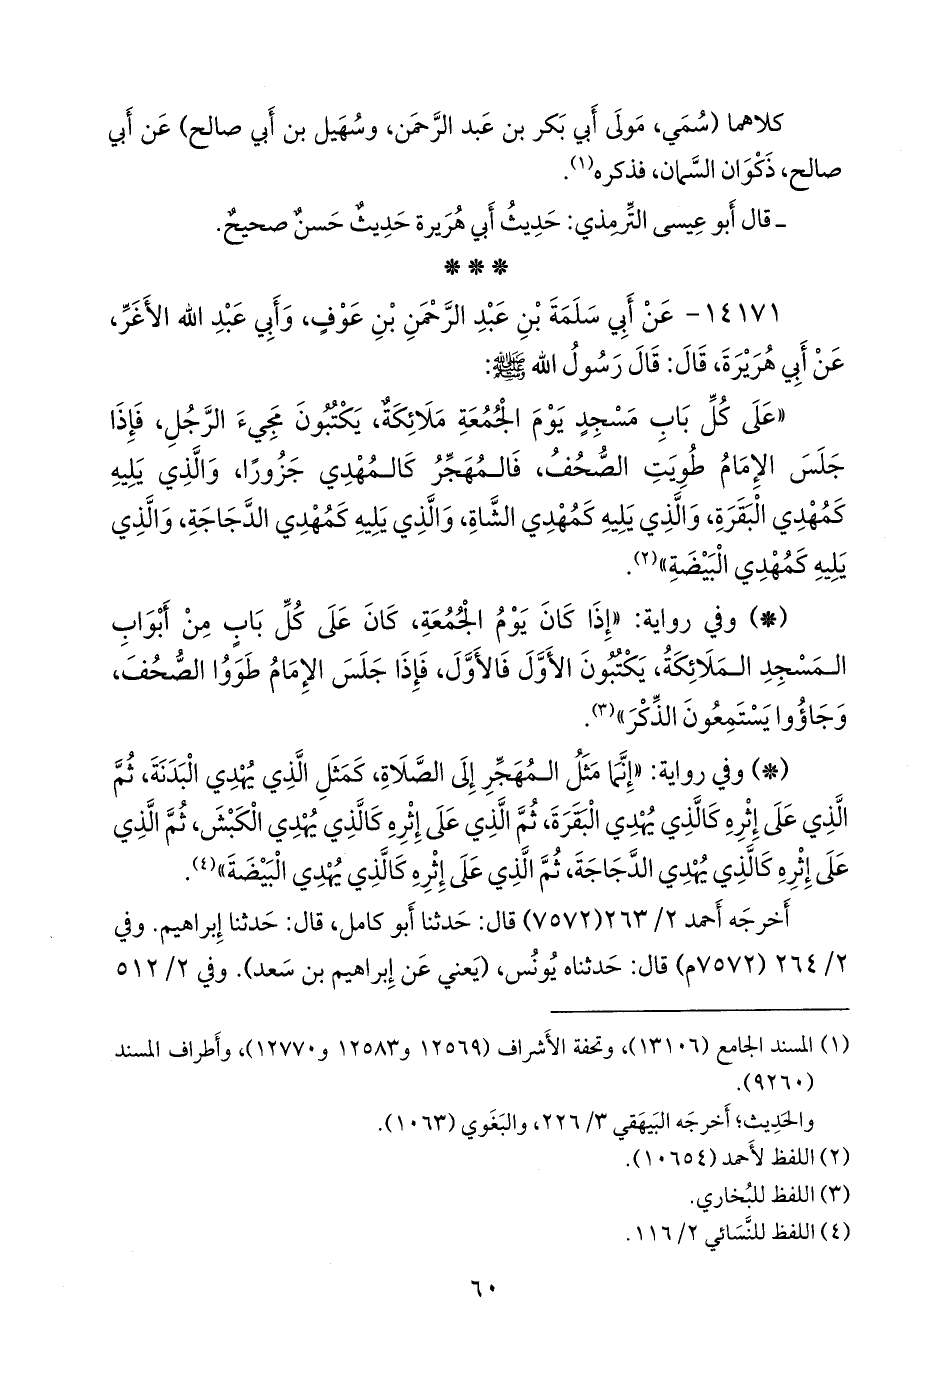 كلاهما (سُمَي، مَولَى أَبي بَكر بن عَبد الرَّحمَن، وسُهَيل بن أَبي صالح) عَن أَبي
صالح، ذَكْوَان السَّمان، فذكره(١).
ـ قال أَبو عِيسى التِّرمِذي: حَدِيثُ أَبي هُرَيرة حَدِيثٌ حَسنٌ صحيحٌ.
* * *
١٤١٧١- عَنْ أَبِي سَلَمَةَ بْنِ عَبْدِ الرَّحْمَنِ بْنِ عَوْفٍ، وَأَبِي عَبْدِ الله الأَغَرِّ،
عَنْ أَبِي هُرَيْرَةَ، قَالَ: قَالَ رَسُولُ الله ﷺ:
«عَلَى كُلِّ بَابِ مَسْجِدٍ يَوْمَ الْجُمُعَةِ مَلَائِكَةٌ، يَكْتُبُونَ مَجِيءَ الرَّجُلِ، فَإِذَا
جَلَسَ الإِمَامُ طُوِيَتِ الصُّحُفُ، فَالـمُهَجِّرُ كَالـمُهْدِي جَزُورًا، وَالَّذِي يَلِيهِ
كَمُهْدِي الْبَقَرَةِ، وَالَّذِي يَلِيهِ كَمُهْدِي الشَّاةِ، وَالَّذِي يَلِيهِ كَمُهْدِي الدَّجَاجَةِ، وَالَّذِي
يَلِيهِ كَمُهْدِي الْبَيْضَةِ»(٢).
(*) وفي رواية: «إِذَا كَانَ يَوْمُ الْجُمُعَةِ، كَانَ عَلَى كُلِّ بَابٍ مِنْ أَبْوَابِ
الـمَسْجِدِ الـمَلَائِكَةُ، يَكْتُبُونَ الأَوَّلَ فَالأَوَّلَ، فَإِذَا جَلَسَ الإِمَامُ طَوَوُا الصُّحُفَ،
وَجَاؤُوا يَسْتَمِعُونَ الذِّكْرَ»(٣).
(*) وفي رواية: «إِنَّمَا مَثَلُ الـمُهَجِّرِ إِلَى الصَّلَاةِ، كَمَثَلِ الَّذِي يُهْدِي الْبَدَنَةَ، ثُمَّ
الَّذِي عَلَى إِثْرِهِ كَالَّذِي يُهْدِي الْبَقَرَةَ، ثُمَّ الَّذِي عَلَى إِثْرِهِ كَالَّذِي يُهْدِي الْكَبْشَ، ثُمَّ الَّذِي
عَلَى إِثْرِهِ كَالَّذِي يُهْدِي الدَّجَاجَةَ، ثُمَّ الَّذِي عَلَى إِثْرِهِ كَالَّذِي يُهْدِي الْبَيْضَةَ»(٤).
أَخرجَه أَحمد ٢/ ٢٦٣(٧٥٧٢) قال: حَدثنا أَبو كامل، قال: حَدثنا إِبراهيم. وفي
٢/ ٢٦٤ (٧٥٧٢م) قال: حَدثناه يُونُس، (يَعني عَن إِبراهيم بن سَعد). وفي ٢/ ٥١٢
(١) المسند الجامع (١٣١٠٦)، وتحفة الأَشراف (١٢٥٦٩ و١٢٥٨٣ و١٢٧٧٠)، وأَطراف المسند
(٩٢٦٠).
والحَدِيث؛ أَخرجَه البَيهَقي ٣/ ٢٢٦، والبَغَوي (١٠٦٣).
(٢) اللفظ لأَحمد (١٠٦٥٤).
(٣) اللفظ للبُخاري.
(٤) اللفظ للنَّسَائي ٢/ ١١٦.
٦٠